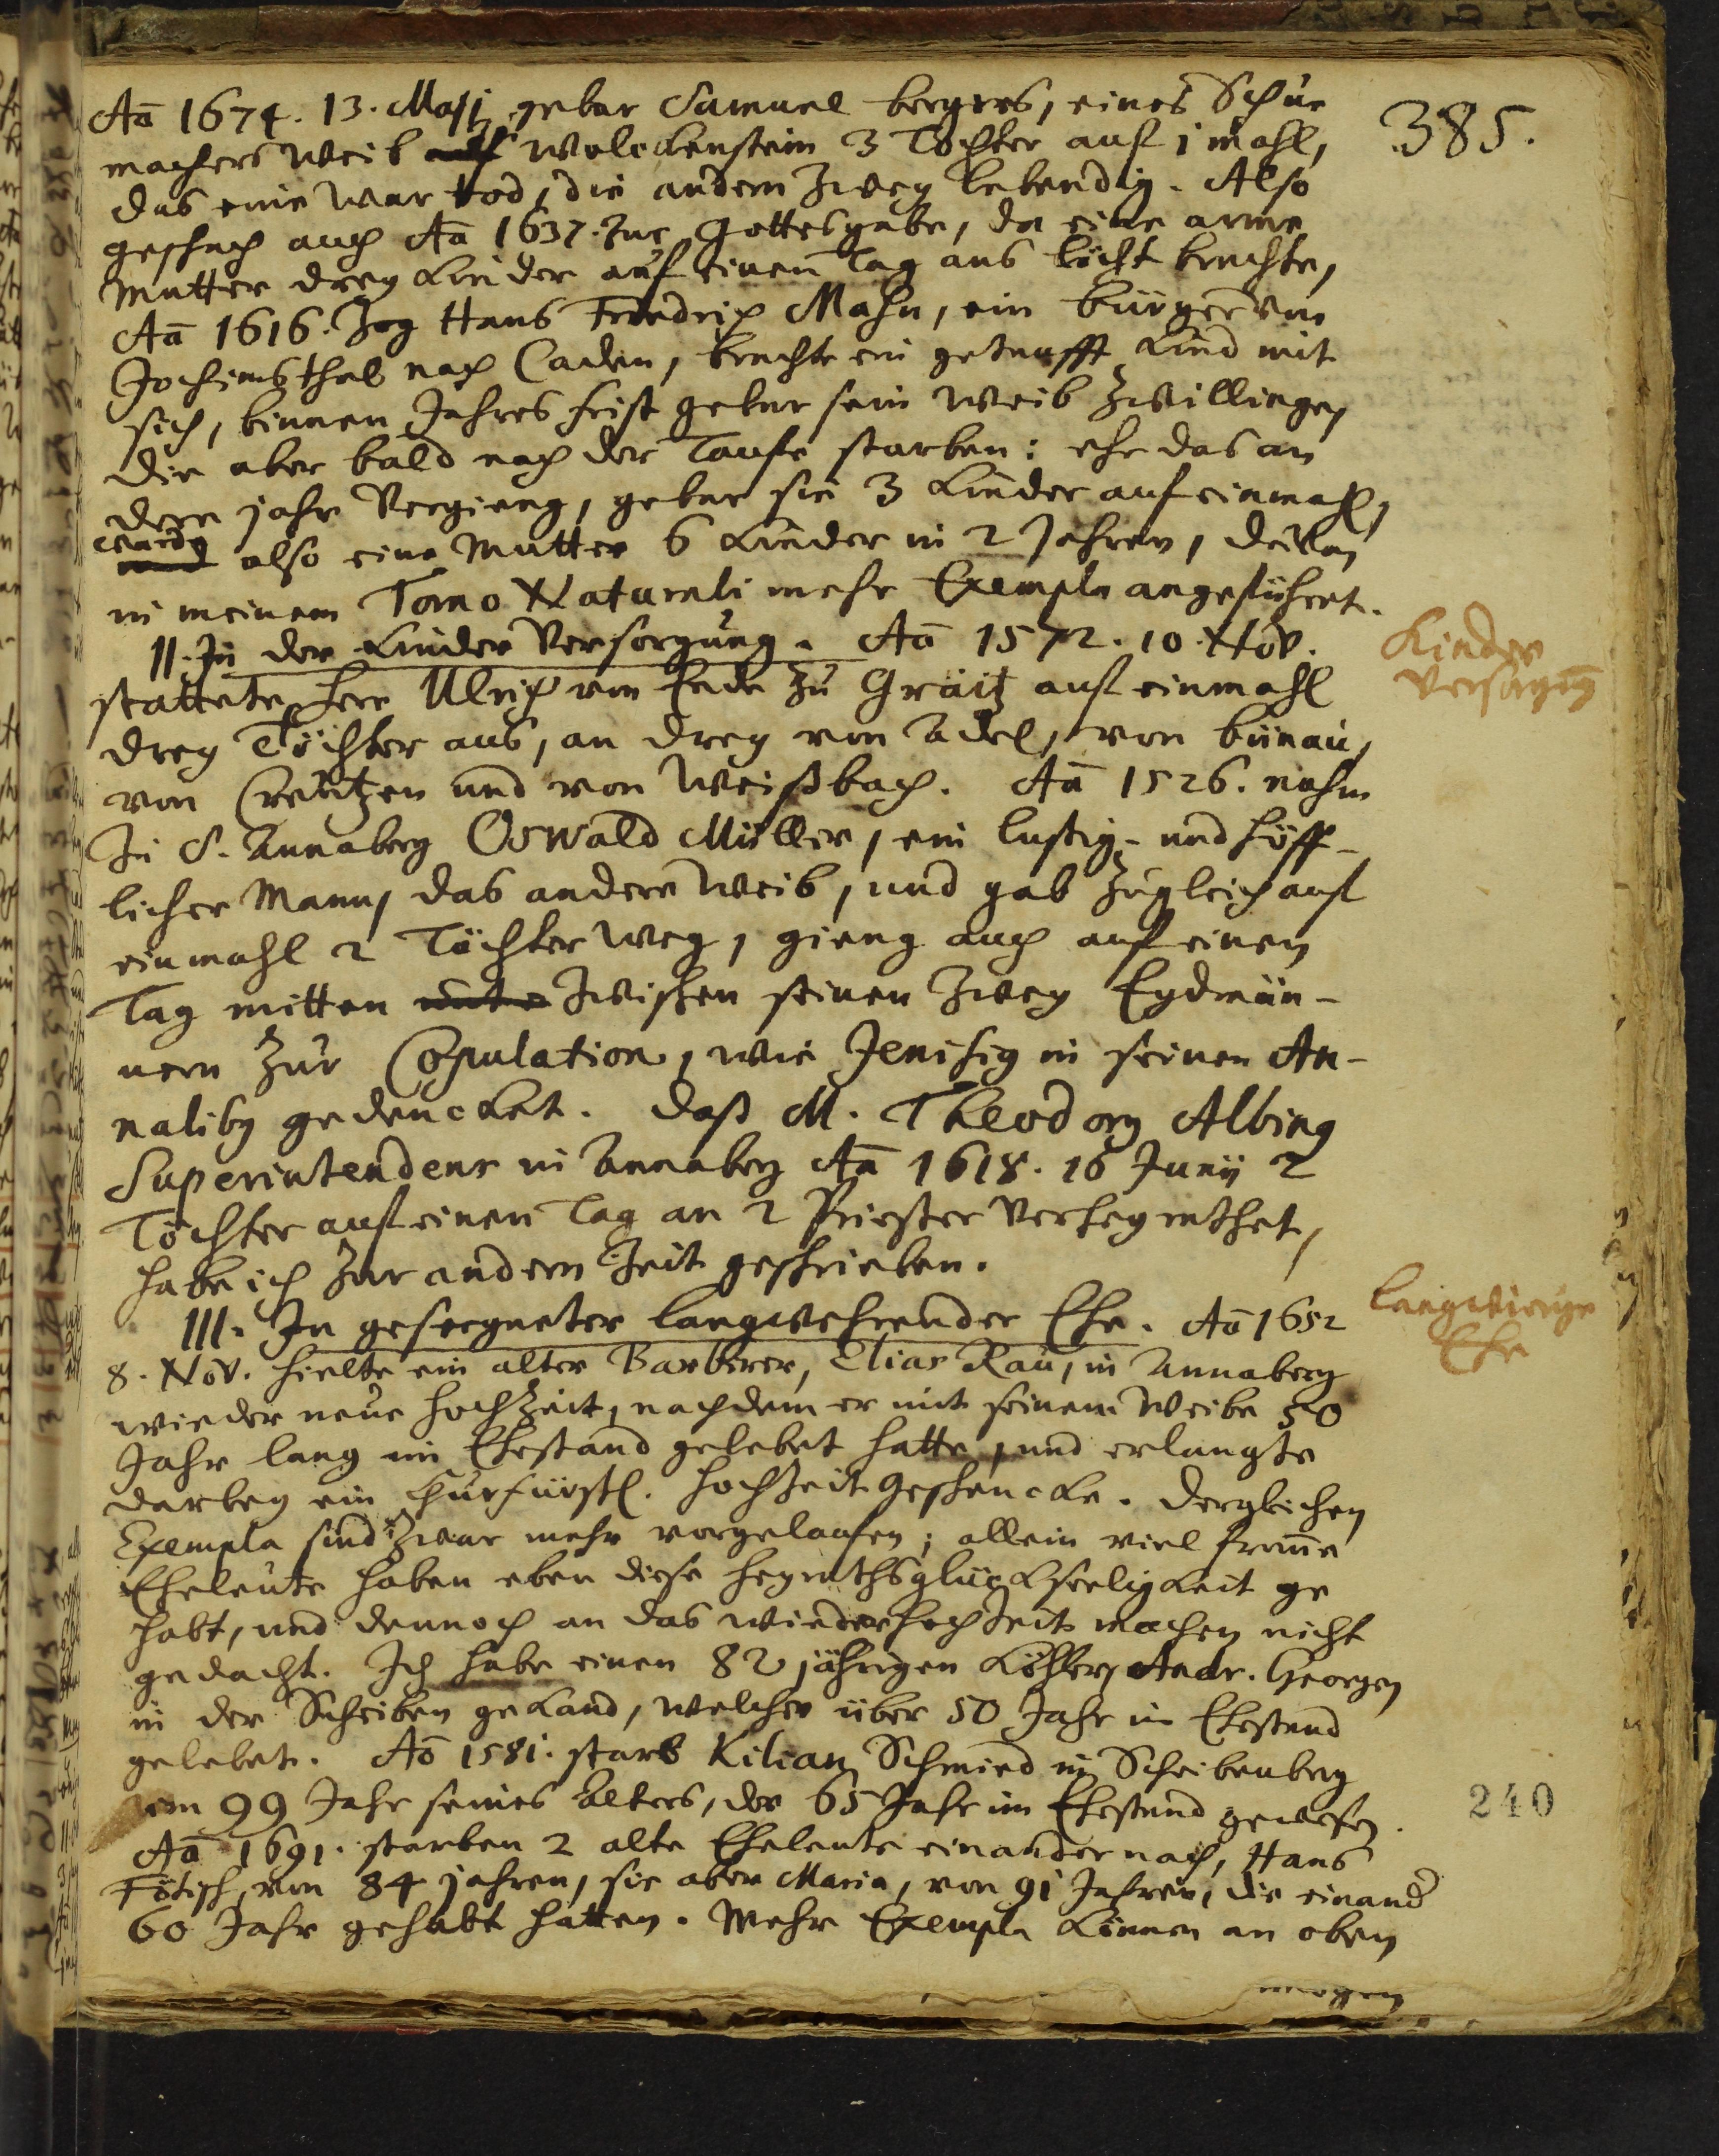 385.
Aō 1674. 13. Maji gebar Samuel bergers, eines Schue
machers Weib Wolckenstein 3 Töchter auf 1 mahl,
das eine war tod, die andern zwey lebendig. Also
geschach auch Aō 1637. zur Gottesgabe, da eine arme
Mutter drey Kinder auf einen Tag ans licht brachte,
Aō 1616. Zog Hans Friedrich Mahn, ein bürger von
Jochimsthal nach Caden, brachte ein getaufft Kind mit
sich, binnen Jahres frist gebar sein Weib Zwillinge,
die aber bald nach der Tauffe starben: ehe das an
dere jahr Vergieng, gebar sie 3 Kinder auf einmahl,
ward also eine Mutter 6 Kinder in 2 Jahren, davon
in meinem Tomo Naturali mehr Exempla angeführet.
II. In der Kinder Versorgung. Aō 1572. 10. Nov.
Kinder
Versorgūg
stattete Herr Ulrich von Ende zu Graitz auf einmahl
drey Töchter aus, an drey von Adel, von bünau,
von Creutzen und von Weißbach. Aō 1526. nahm
In S. Annaberg Oswald Müller, ein lustig- und höff-
licher Mann, das andere Weib, und gab zugleich auf
einmahl 2 Töchter weg, gieng auch auf einen
Tag mitten zwischen seinen zwey Eydmän-
nern zur Copulation, wie Jenisig in seinen An-
naliby gedencket. Daß M. Theodorg Albing
Superintendens in Annaberg Aō 1618. 16 Junij 2
Töchter auf einen Tag an 2 Priester Verheyrathet,
habe ich zur andern Zeit geschrieben.
III. In geseegneter langwehrender Ehe. Aō 1652
langwirige
Ehe
8. Nov. hielte ein alter Barbirer, Elias Rau, in Annaberg
wieder neue hochzeit, nachdem er mit seinem Weibe 50
Jahr lang im Ehestand gelebet hatte, und erlangte
darbey ein Churfürstl. Hochzeit Geschencke. Dergleichen
Exempla sind zwar mehr vorgelaufen; allein viel from̄e
Eheleute haben eben diese heyrathsglückseeligkeit ge
habt, und dennoch an das wiederhochzeit machen nicht
gedacht. Ich habe einen 82 jährigen Köhler, Andr. Georgen
in der Scheiben gekand, welcher über 50 Jahr im Ehestand
gelebet. Aō 1581. starb Kilian Schmied in Scheibenberg
im 99 Jahr seines Alters, der 65 Jahr im Ehestand gewesen.
240
Aō 1691. starben 2 alte Eheleute einander nach, Hans
Fötisch, von 84 jahren, sie aber Maria, von 91 Jahren, die einand
60 Jahr gehabt hatten. Mehr Exempla können an oben